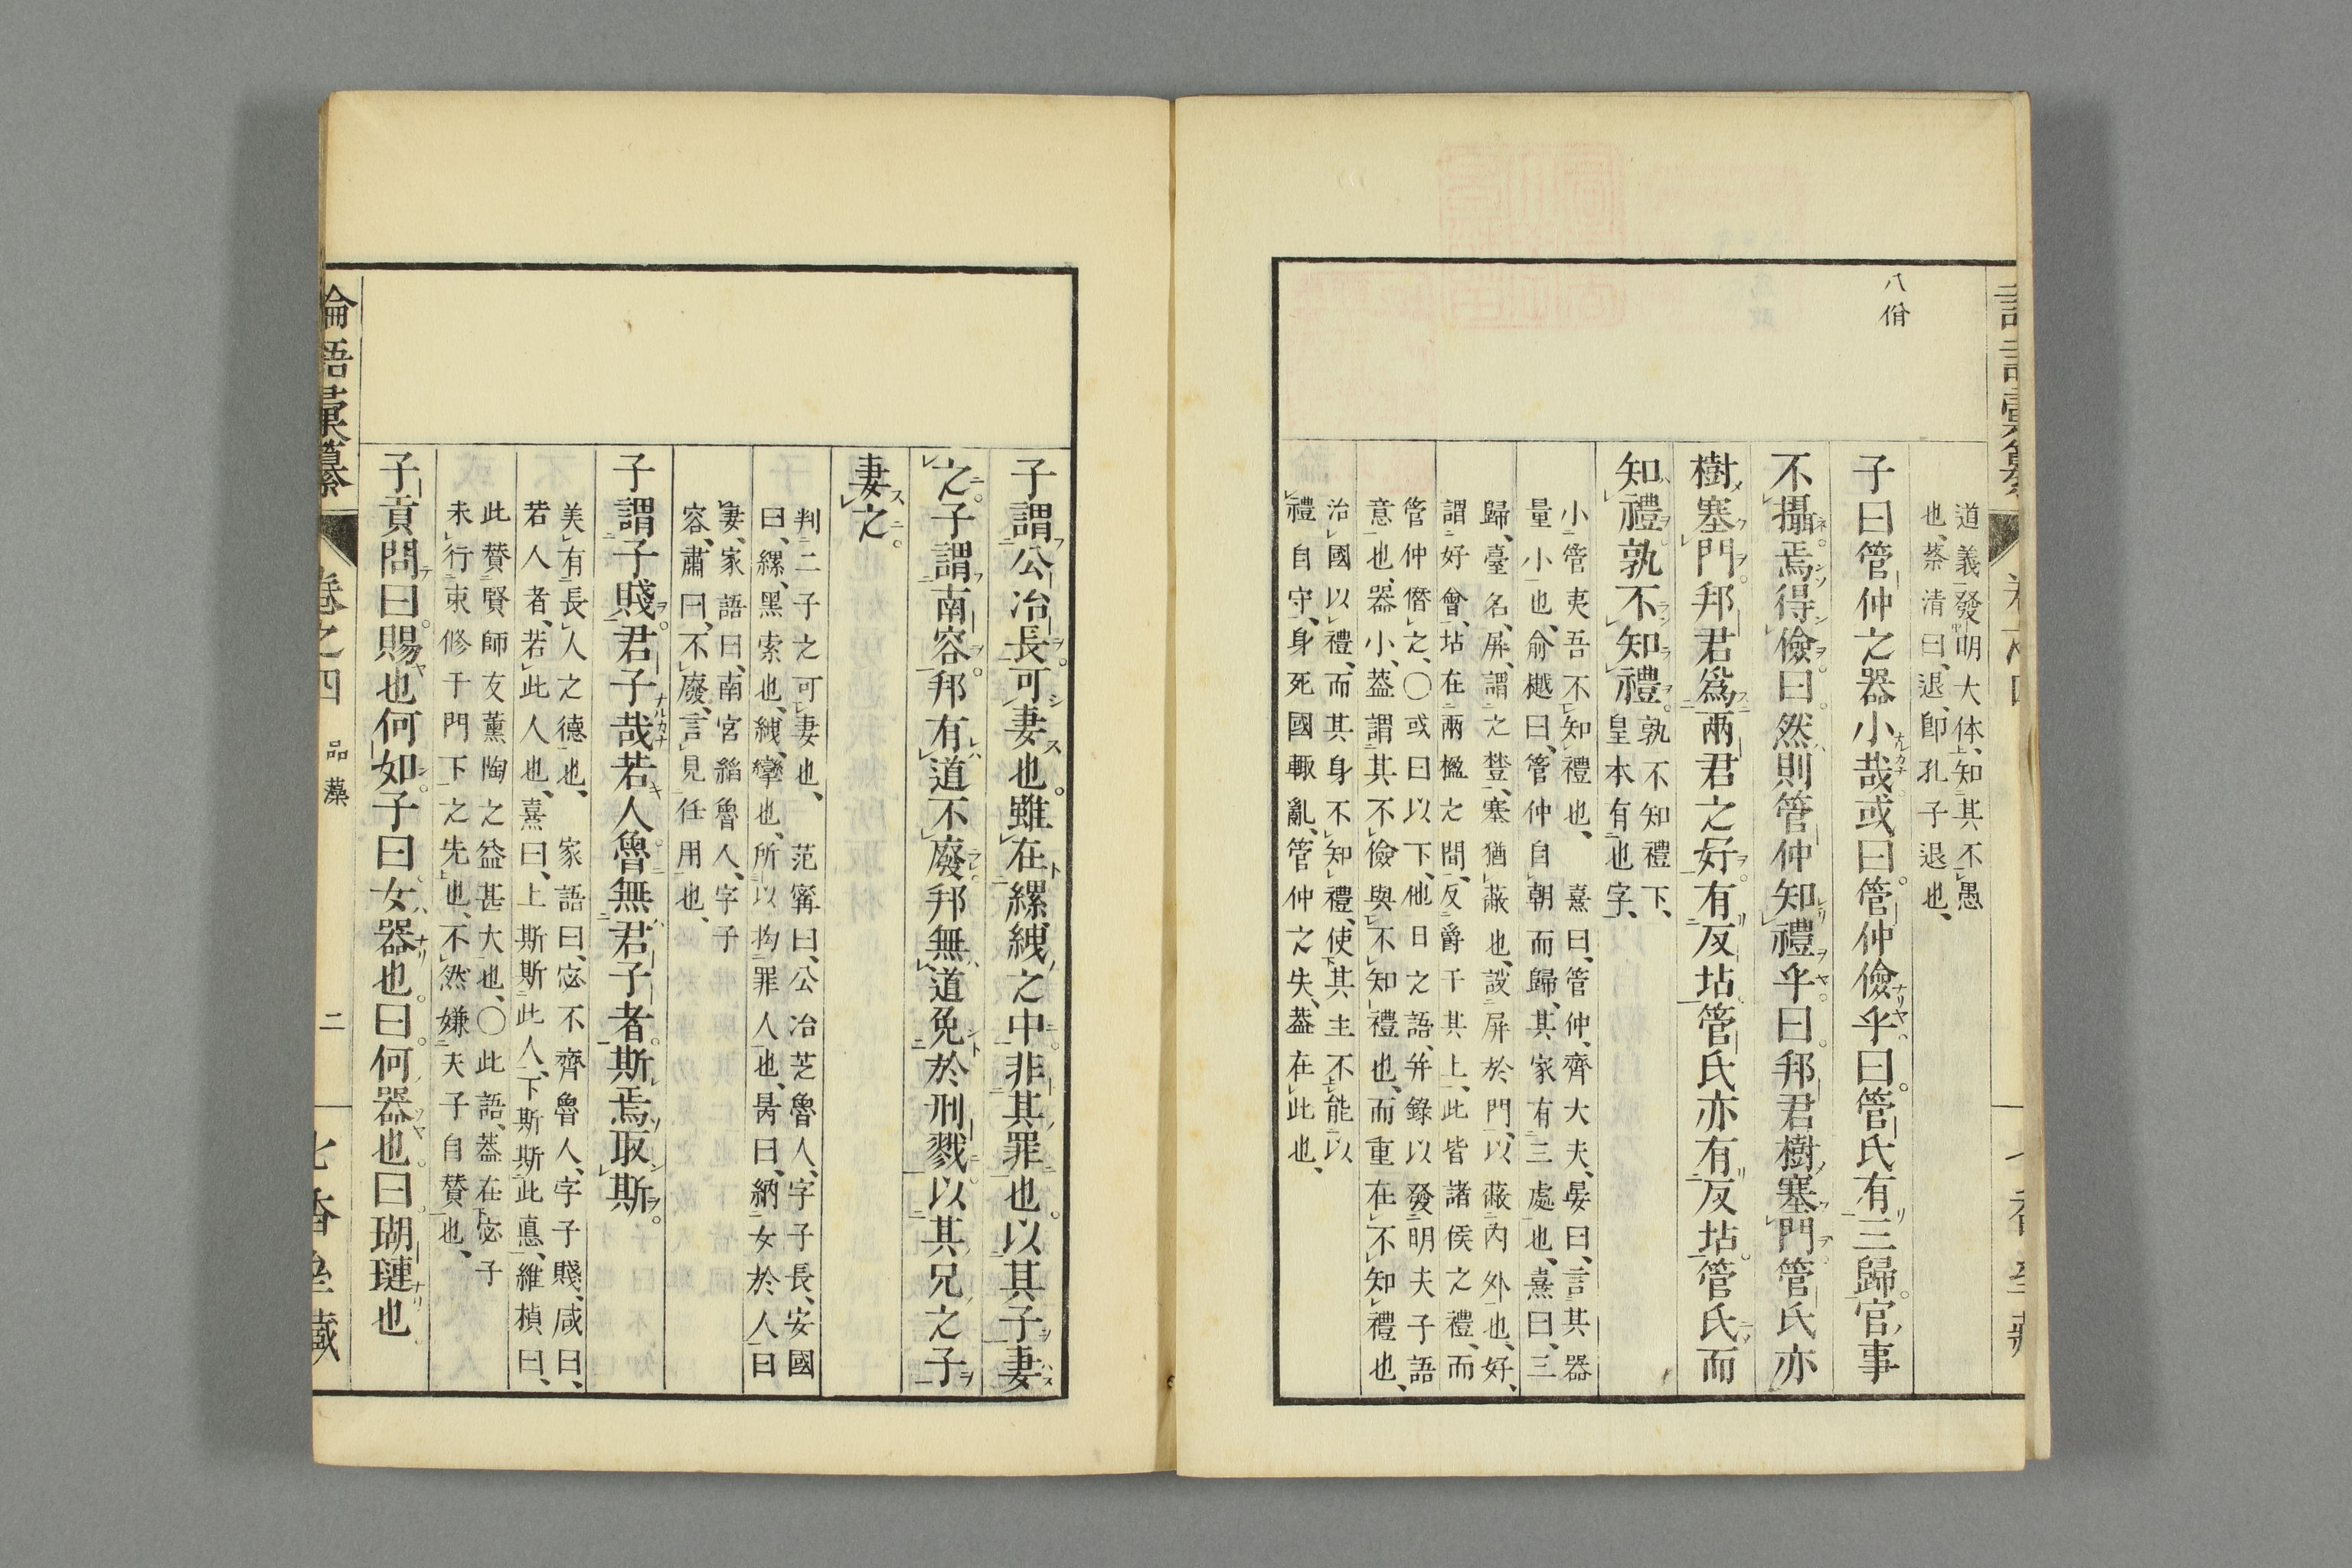 八佾
道義發明大体、知其不愚
也、蔡清曰、退、卽孔子退也、
子曰管仲之器小哉或曰管仲儉乎曰管氏有三歸官事
不攝焉得儉曰然則管仲知禮乎曰邦君樹塞門管氏亦
樹塞門邦君爲兩君之好有反坫管氏亦有反坫管氏而
知禮孰不知禮
孰不知禮下、
皇本有也字、
小管夷吾不知禮也、熹曰、管仲、齊大夫、晏曰、言其器
量小也、俞樾曰、管仲自朝而歸、其家有三處也、熹曰、三
歸、臺名、屏、謂之㙜、塞猶蔽也、設屏於門、以蔽內外也、好、
謂好會、坫在兩楹之間、反爵于其上、此皆諸侯之禮、而
管仲僭之、〇或曰以下、他日之語、幷錄以發明夫子語
意也、器小、葢謂其不儉與不知禮也、而重在不知禮也、
治國以禮、而其身不知禮、使其主不能以
禮自守、身死國輙亂、管仲之失、葢在此也、
子謂公冶長可妻也雖在縲絏之中非其罪也以其子妻
之子謂南容邦有道不廢邦無道免於刑戮以其兄之子
妻之
判二子之可妻也、范甯曰、公冶芝魯人、字子長、安國
曰、縲、黑索也、絏、攣也、所以拘罪人也、昺曰、納女於人曰
妻、家語曰、南宮縚魯人、字子
容、肅曰、不廢、言見任用也、
子謂子賤君子哉若人魯無君子者斯焉取斯
美有長人之德也、家語曰、宓不齊魯人、字子賤、咸曰、
若人者、若此人也、熹曰、上斯斯此人、下斯斯此悳、維楨曰、
此贊賢師友薰陶之益甚大也、〇此語、葢在宓子
未行束修于門下之先也、不然嫌夫子自贊也、
子貢問曰賜也何如子曰女器也曰何器也曰瑚璉也
論語彙纂
卷之四
品藻
二
七香堂藏